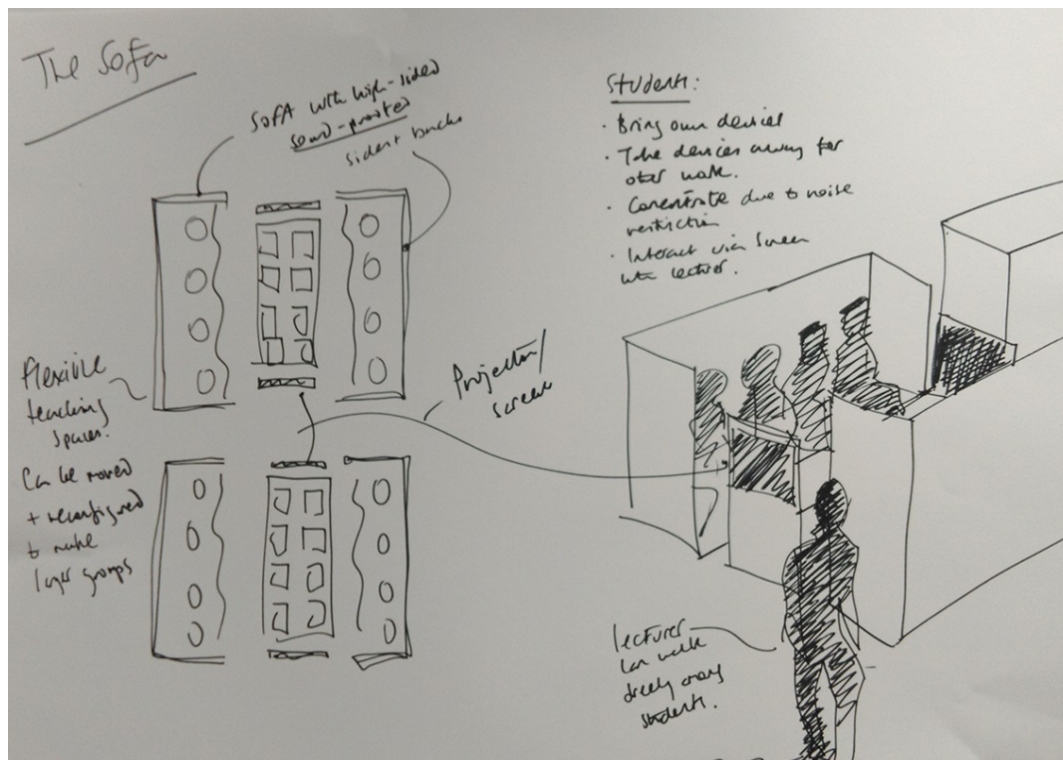 The Sofa
SofA with high-sided
sound-proofed
sides + backs
Flexible
teaching
spaces.
Can be moved
+ reconfigured
to make
larger groups
Projector/
screen
Students:
· Bring own devices
· Take devices away for
other work.
· Concentrate due to noise
restriction
· Interact via screen
with lecturer.
lecturer
can walk
freely among
students.